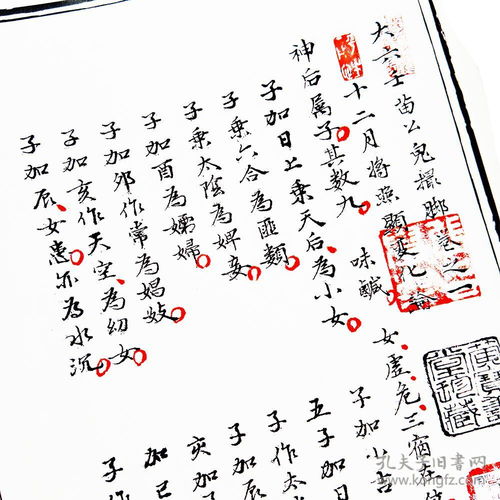 大六壬苗公鬼撮脚卷之一
十二月將照顯變化論
神后屬子其數九 味鹹 女虛危三宿在
子加日上乘天后為小女 子加小吉
子乘六合為匪類 五子加日
子乘太陰為婢妾 子作太
子加酉為孀婦 子加辰
子加卯作常為娼妓 亥加
子加亥作天空為幼女 加巳
子加辰女患亦為水沉 子作
孔夫子旧书网
www.kongfz.com